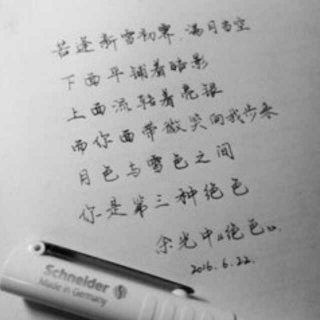 若逢新雪初霁 满月当空
下面平铺着皓影
上面流转着亮银
而你面带微笑向我步来
月色与雪色之间
你是第三种绝色
余光中《绝色》
2016.6.22.
Schneider
Made in Germany